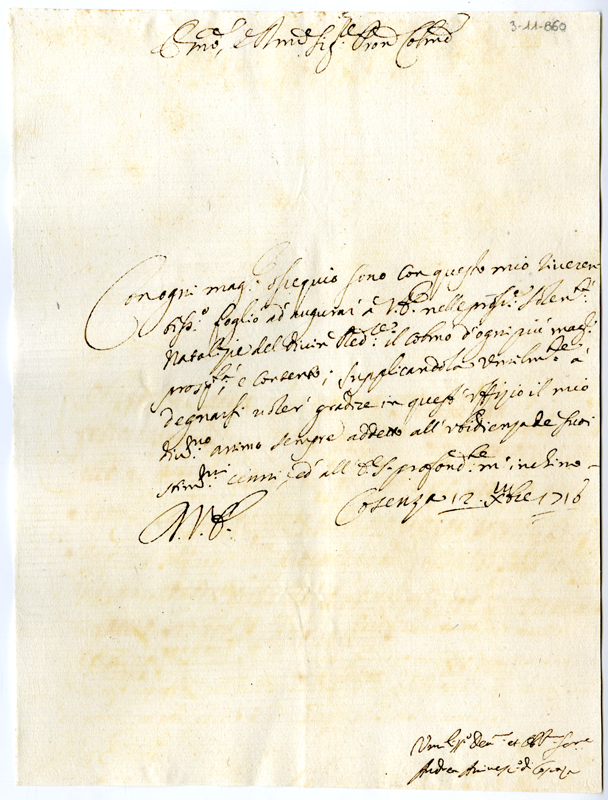 3-11-860
Em.o, e Rmo Sig.re Pron Colmo
Con ogni mag.r ossequio sono con questo mio riveren
tiss.o foglio ad augurar à V.E. nelle pross.e solen.tà
Natalizie del Divin Red.re il colmo d'ogni più mag.r
prosp.tà, e contento; supplicandola umilm.te à
degnarsi voler gradire in quest'uffizio il mio
animo sempre addetto all'ubidienza de suoi
stim.mi cenni, ed all'E.V. profond.te m'inchino
Cosenza 12 Xbre 1716
Umiliss.o Dev. et Obb. Ser.e
Andrea Arcivesc.o di Cosenza